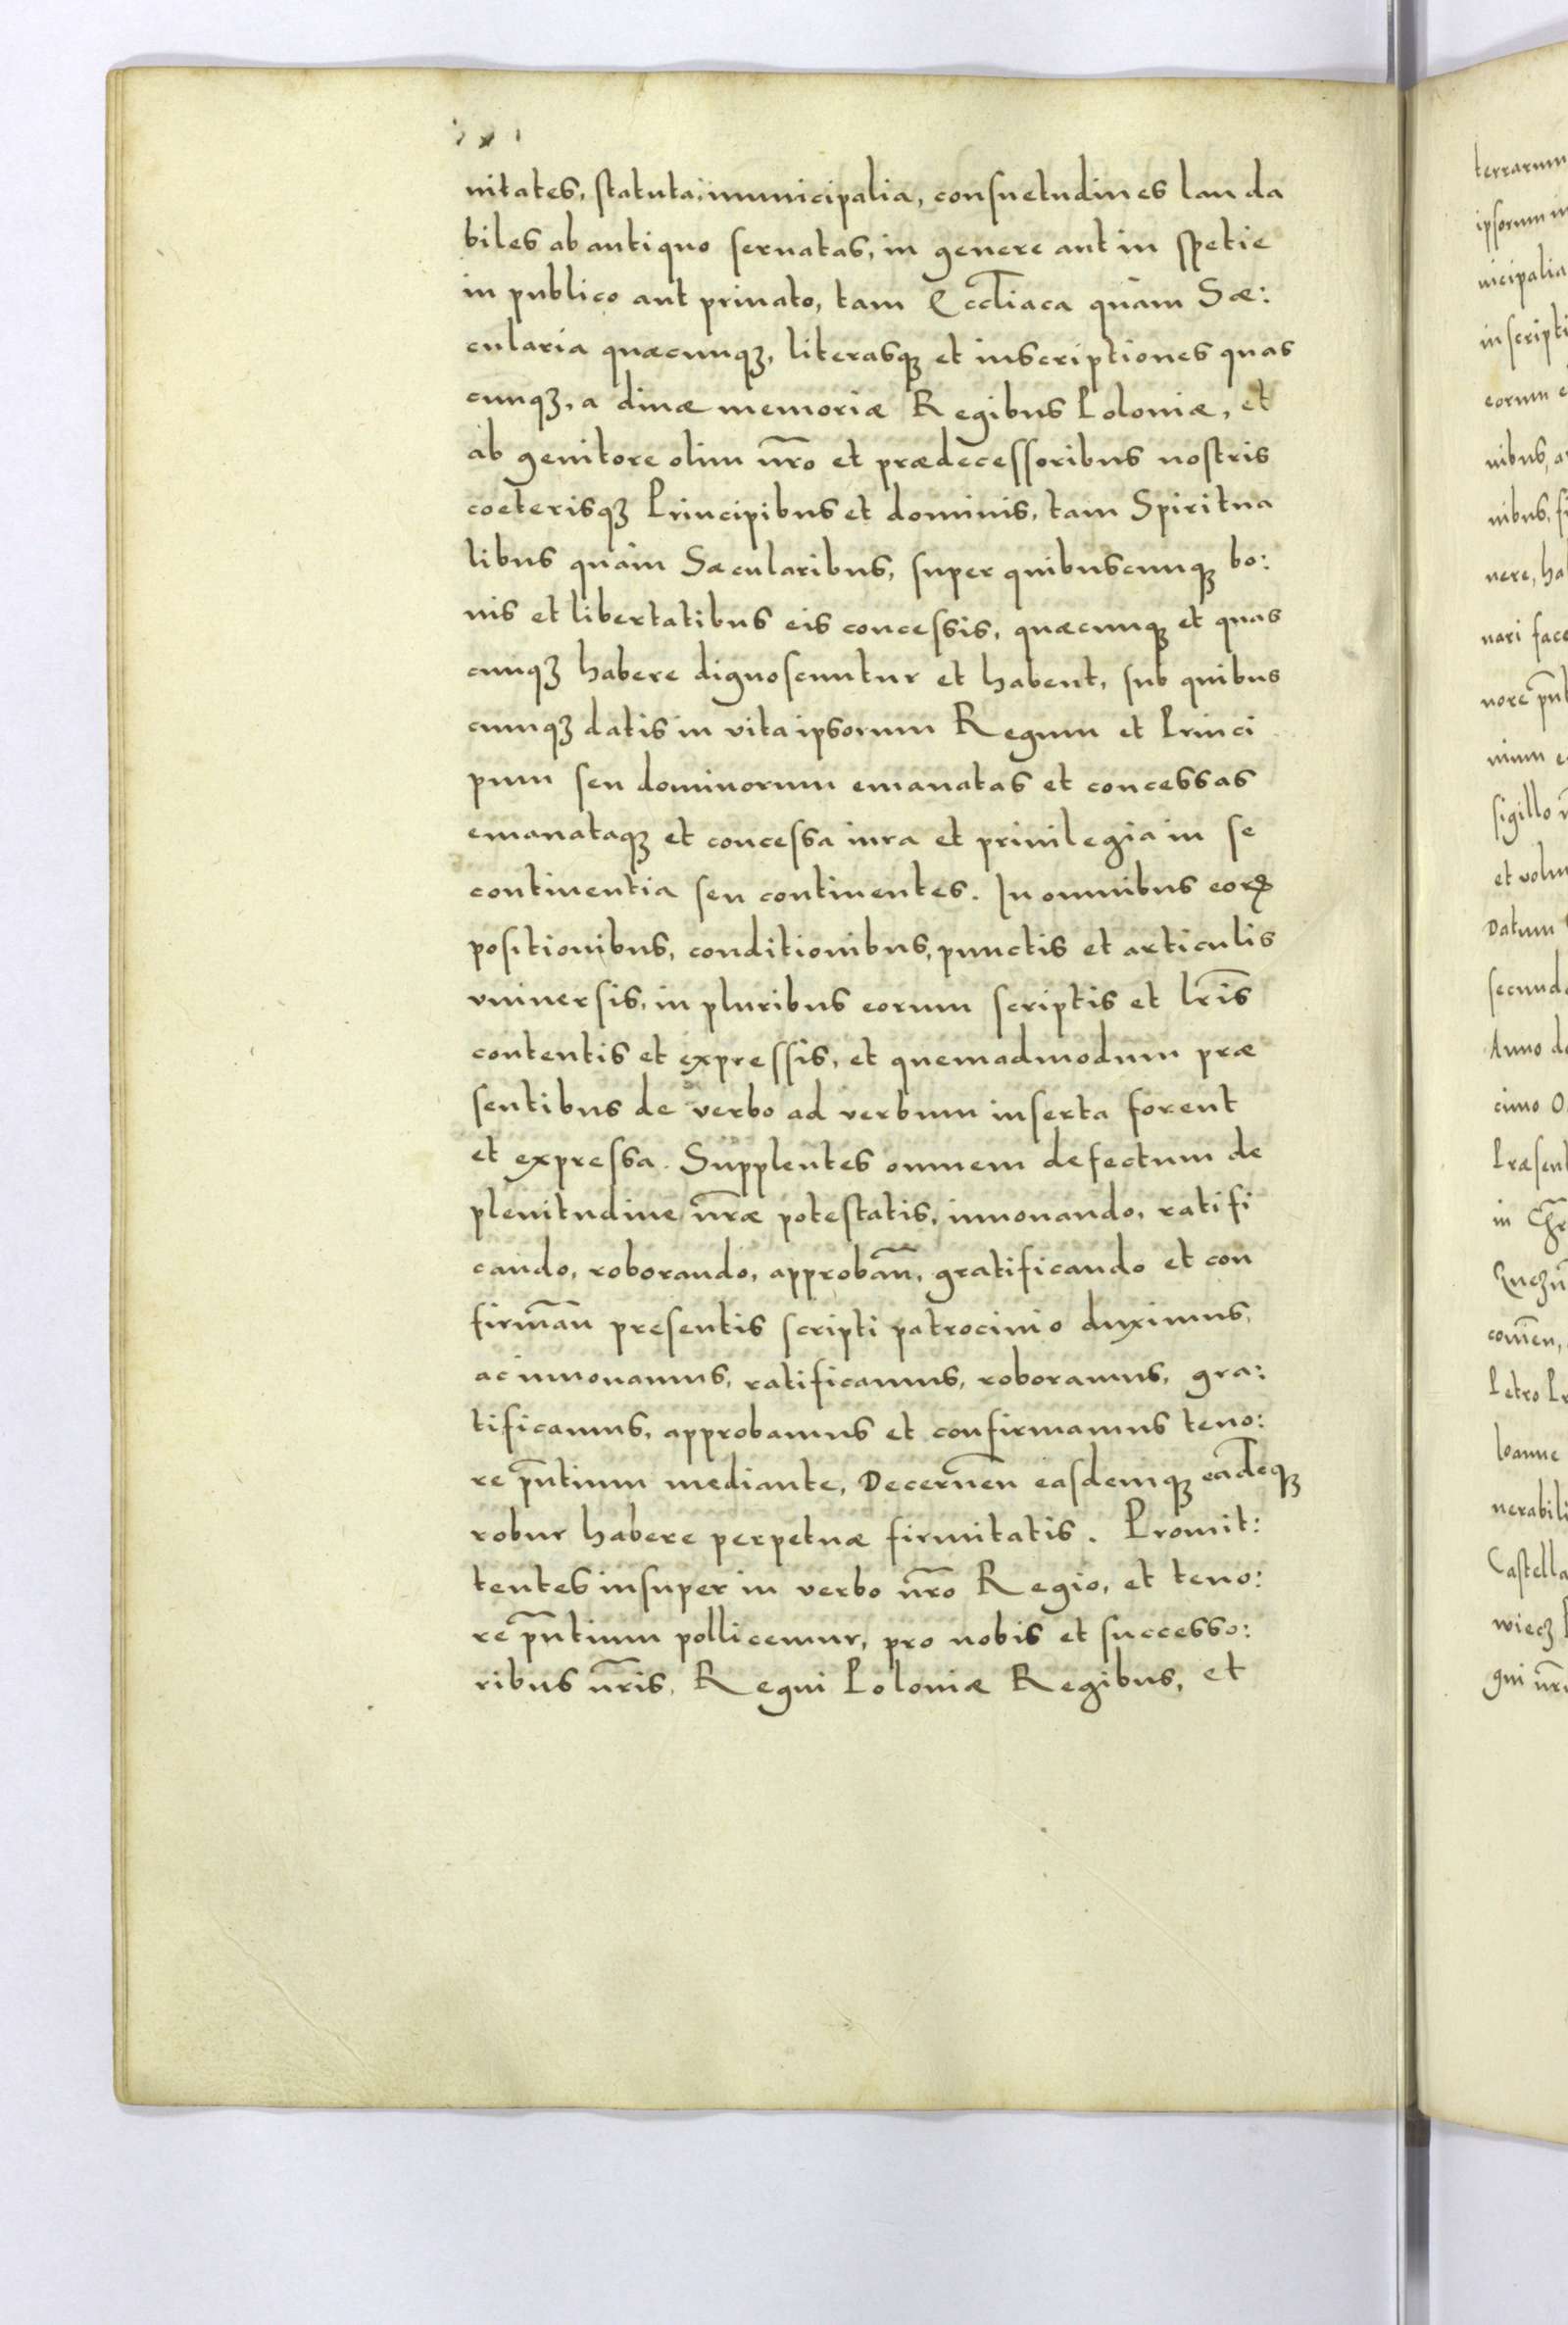 nitates, statuta, municipalia, consuetudines lauda
biles ab antiquo seruatas, in genere aut in spetie
in publico aut priuato, tam Eccl̄iaca quàm Sæ:
cularia quæcunqꝫ, literasqꝫ et inscriptiones quas
cunqꝫ, a diuæ memoriæ Regibus Poloniæ, et
ab genitore olim nr̄o et prædecessoribus nostris
coeterisqꝫ Principibus et dominis, tam Spiritua
libus quàm Sæcularibus, super quibuscunqꝫ bo:
nis et libertatibus eis concessis, quæcunqꝫ et quas
cunqꝫ habere dignoscuntur et habent, sub quibus
cunqꝫ datis in vita ipsorum Regum et Princi
pum seu dominorum emanatas et concessas
emanataqꝫ et concessa iura et priuilegia in se
continentia seu continentes. In omnibus eorꝝ
positionibus, conditionibus, punctis et articulis
vniuersis, in pluribus eorum scriptis et lr̄is
contentis et expressis, et quemadmodum præ
sentibus de verbo ad verbum inserta forent
et expressa. Supplentes omnem defectum de
plenitudine nr̄æ potestatis, innouando, ratifi
cando, roborando, approbān̄, gratificando et con
firmān̄ presentis scripti patrocinio duximus,
ac innouamus, ratificamus, roboramus, gra:
tificamus, approbamus et confirmamus teno:
re pn̄tium mediante, Decernēn easdemqꝫ eādēqꝫ
robur habere perpetuæ firmitatis. Promit:
tentes insuper in verbo nr̄o Regio, et teno:
re pn̄tium pollicemur, pro nobis et successo:
ribus nr̄is, Regni Poloniæ Regibus, et
terrarum
ipsorum
nicipalia
inscripti
eorum e
nibus, a
nibus, si
nere, ha
nari face
nore pn̄t
nium e
sigillo
et volu
Datum
secund
Anno do
cimo O
Præsent
in Chr
com̄en,
Petro Pr
Ioanne
nerabili
Castella
wiecz
gni nr̄i